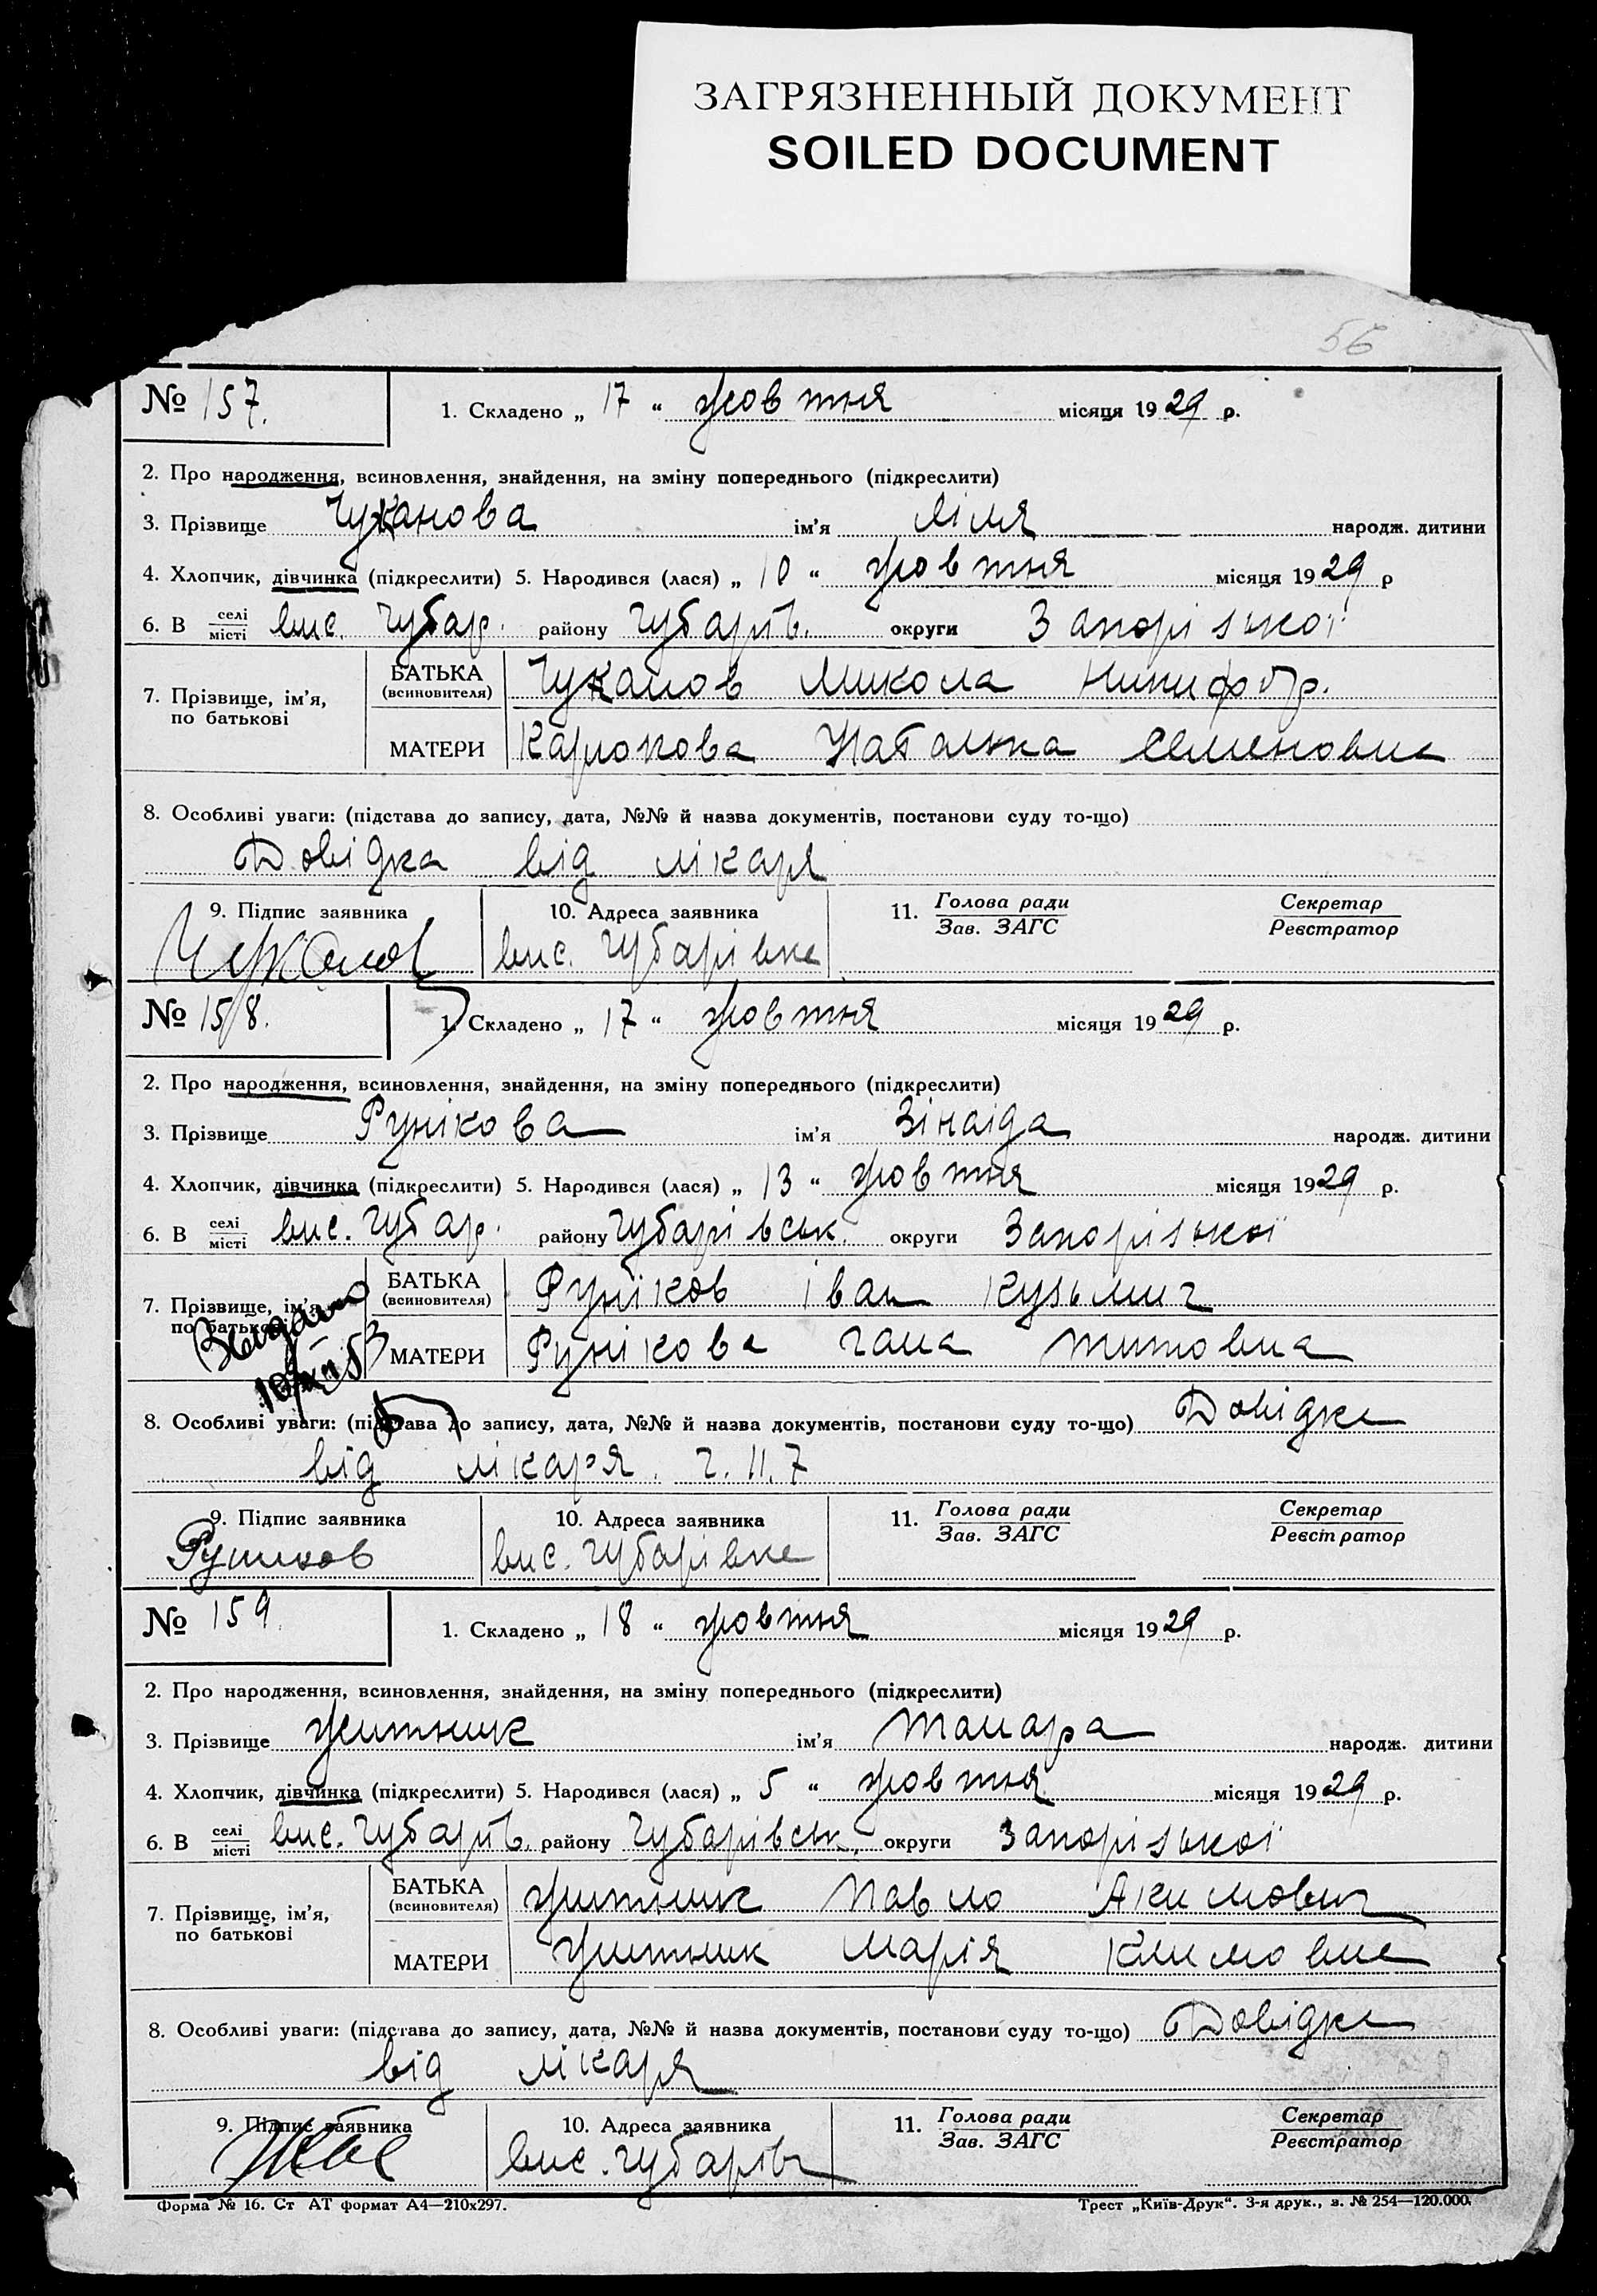 ЗАГРЯЗНЕННЫЙ ДОКУМЕНТ
SOILED DOCUMENT
56
№ 157. 1. Складено „ 17 “ жовтня місяця 1929 р.
2. Про народження, всиновлення, знайдення, на зміну попереднього (підкреслити)
3. Прізвище Чужанова ім’я Ліля народж. дитини
4. Хлопчик, дівчинка (підкреслити) 5. Народився (лася) „ 10 “ жовтня місяця 1929 р
6. В селі місті вис. Чубар. району Чубарів. округи Запорізької
7. Прізвище, ім’я, по батькові
БАТЬКА (всиновителя) Микола Никифор.
МАТЕРИ Наталка Семеновна
8. Особливі уваги: (підстава до запису, дата, №№ й назва документів, постанови суду то-що)
Довідка від лікаря
9. Підпис заявника 10. Адреса заявника 11. Голова ради Зав. ЗАГС Секретар Реєстратор
вис. Чубарівка
№ 158. 1. Складено „ 17 “ жовтня місяця 1929 р.
2. Про народження, всиновлення, знайдення, на зміну попереднього (підкреслити)
3. Прізвище Рунікова ім’я Зінаіда народж. дитини
4. Хлопчик, дівчинка (підкреслити) 5. Народився (лася) „ 13 “ жовтня місяця 1929 р.
6. В селі місті вис. Чубар. району Чубарівськ. округи Запорізької
7. Прізвище, ім’я, по батькові
БАТЬКА (всиновителя) Руніков Іван Кузьмич
МАТЕРИ Рунікова Гана Титовна
8. Особливі уваги: (підстава до запису, дата, №№ й назва документів, постанови суду то-що) Довідка
від лікаря. ч. 117
9. Підпис заявника 10. Адреса заявника 11. Голова ради Зав. ЗАГС Секретар Реєстратор
Руников вис. Чубарівка
№ 159. 1. Складено „ 18 “ жовтня місяця 1929 р.
2. Про народження, всиновлення, знайдення, на зміну попереднього (підкреслити)
3. Прізвище Житник ім’я Тамара народж. дитини
4. Хлопчик, дівчинка (підкреслити) 5. Народився (лася) „ 5 “ жовтня місяця 1929 р.
6. В селі місті вис. Чубарів. району Чубарівськ. округи Запорізької
7. Прізвище, ім’я, по батькові
БАТЬКА (всиновителя) Житник Павло Акимович
МАТЕРИ Житник Марія Климовна
8. Особливі уваги: (підстава до запису, дата, №№ й назва документів, постанови суду то-що) Довідка
від лікаря
9. Підпис заявника 10. Адреса заявника 11. Голова ради Зав. ЗАГС Секретар Реєстратор
вис. Чубарів
Форма № 16. Ст АТ формат А4—210х297. Трест „Київ-Друк“. 3-я друк., з. № 254—120.000.